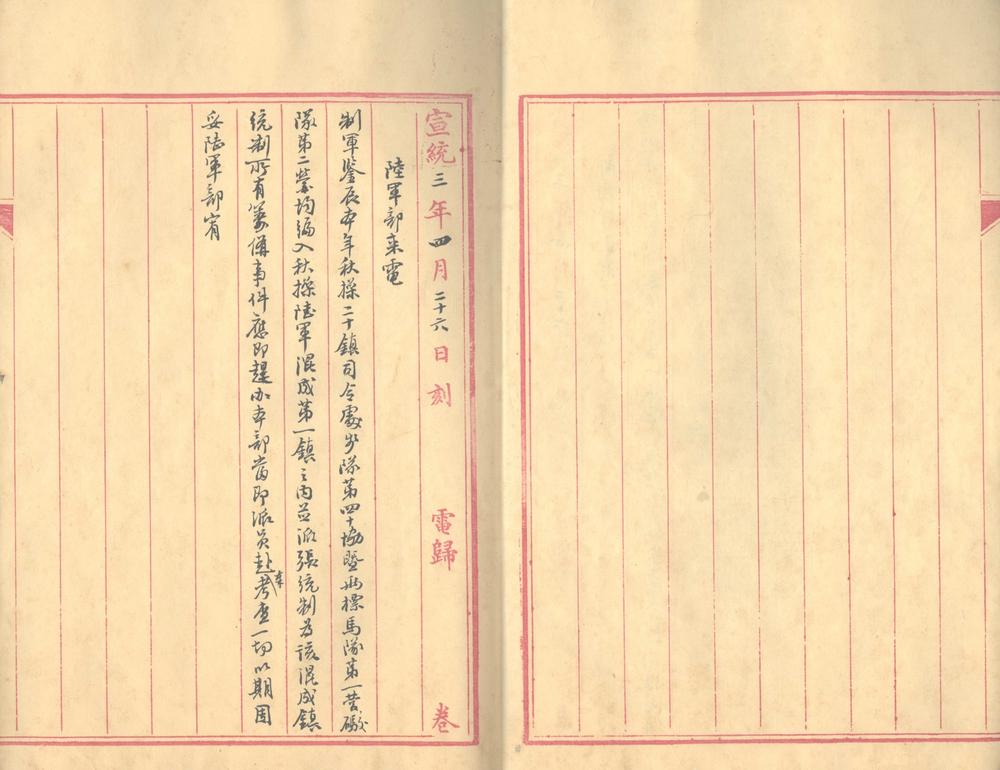 宣統三年四月二十六日刻 電歸 卷
陸軍部來電
制軍鑒辰本年秋操二十鎮司令處步隊第四十協暨兩標馬隊第一營礮
隊第二營均編入秋操陸軍混成第一鎮之內並派張統制為該混成鎮
統制所有籌備事件應即趕辦本部當即派員赴奉考查一切以期周
妥陸軍部宥